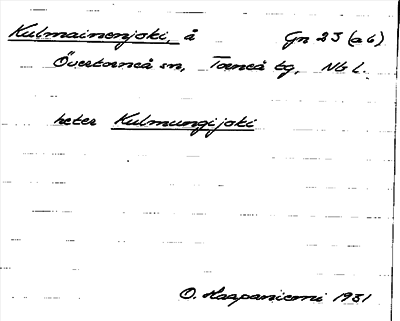 Kulmainenjoki, å Gn 23 (a 6)
Övertorneå sn, Torneå tg, Nb L.
heter Kulmungijoki
O. Haapaniemi 1931